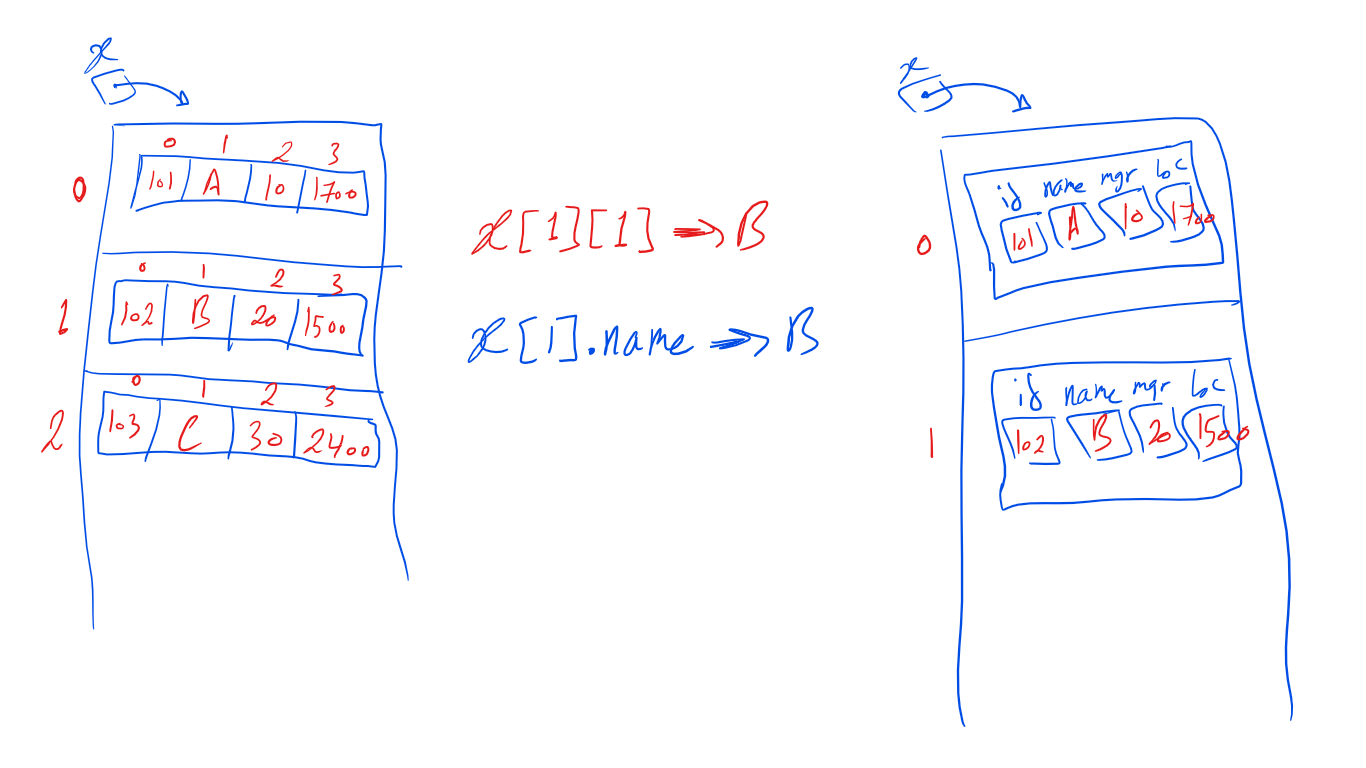 x
0 1 2 3
0 101 A 10 1700
0 1 2 3
1 102 B 20 1500
0 1 2 3
2 103 C 30 2400
x[1][1] → B
x[1].name → B
x
id name mgr loc
0 101 A 10 1700
id name mgr loc
1 102 B 20 1500